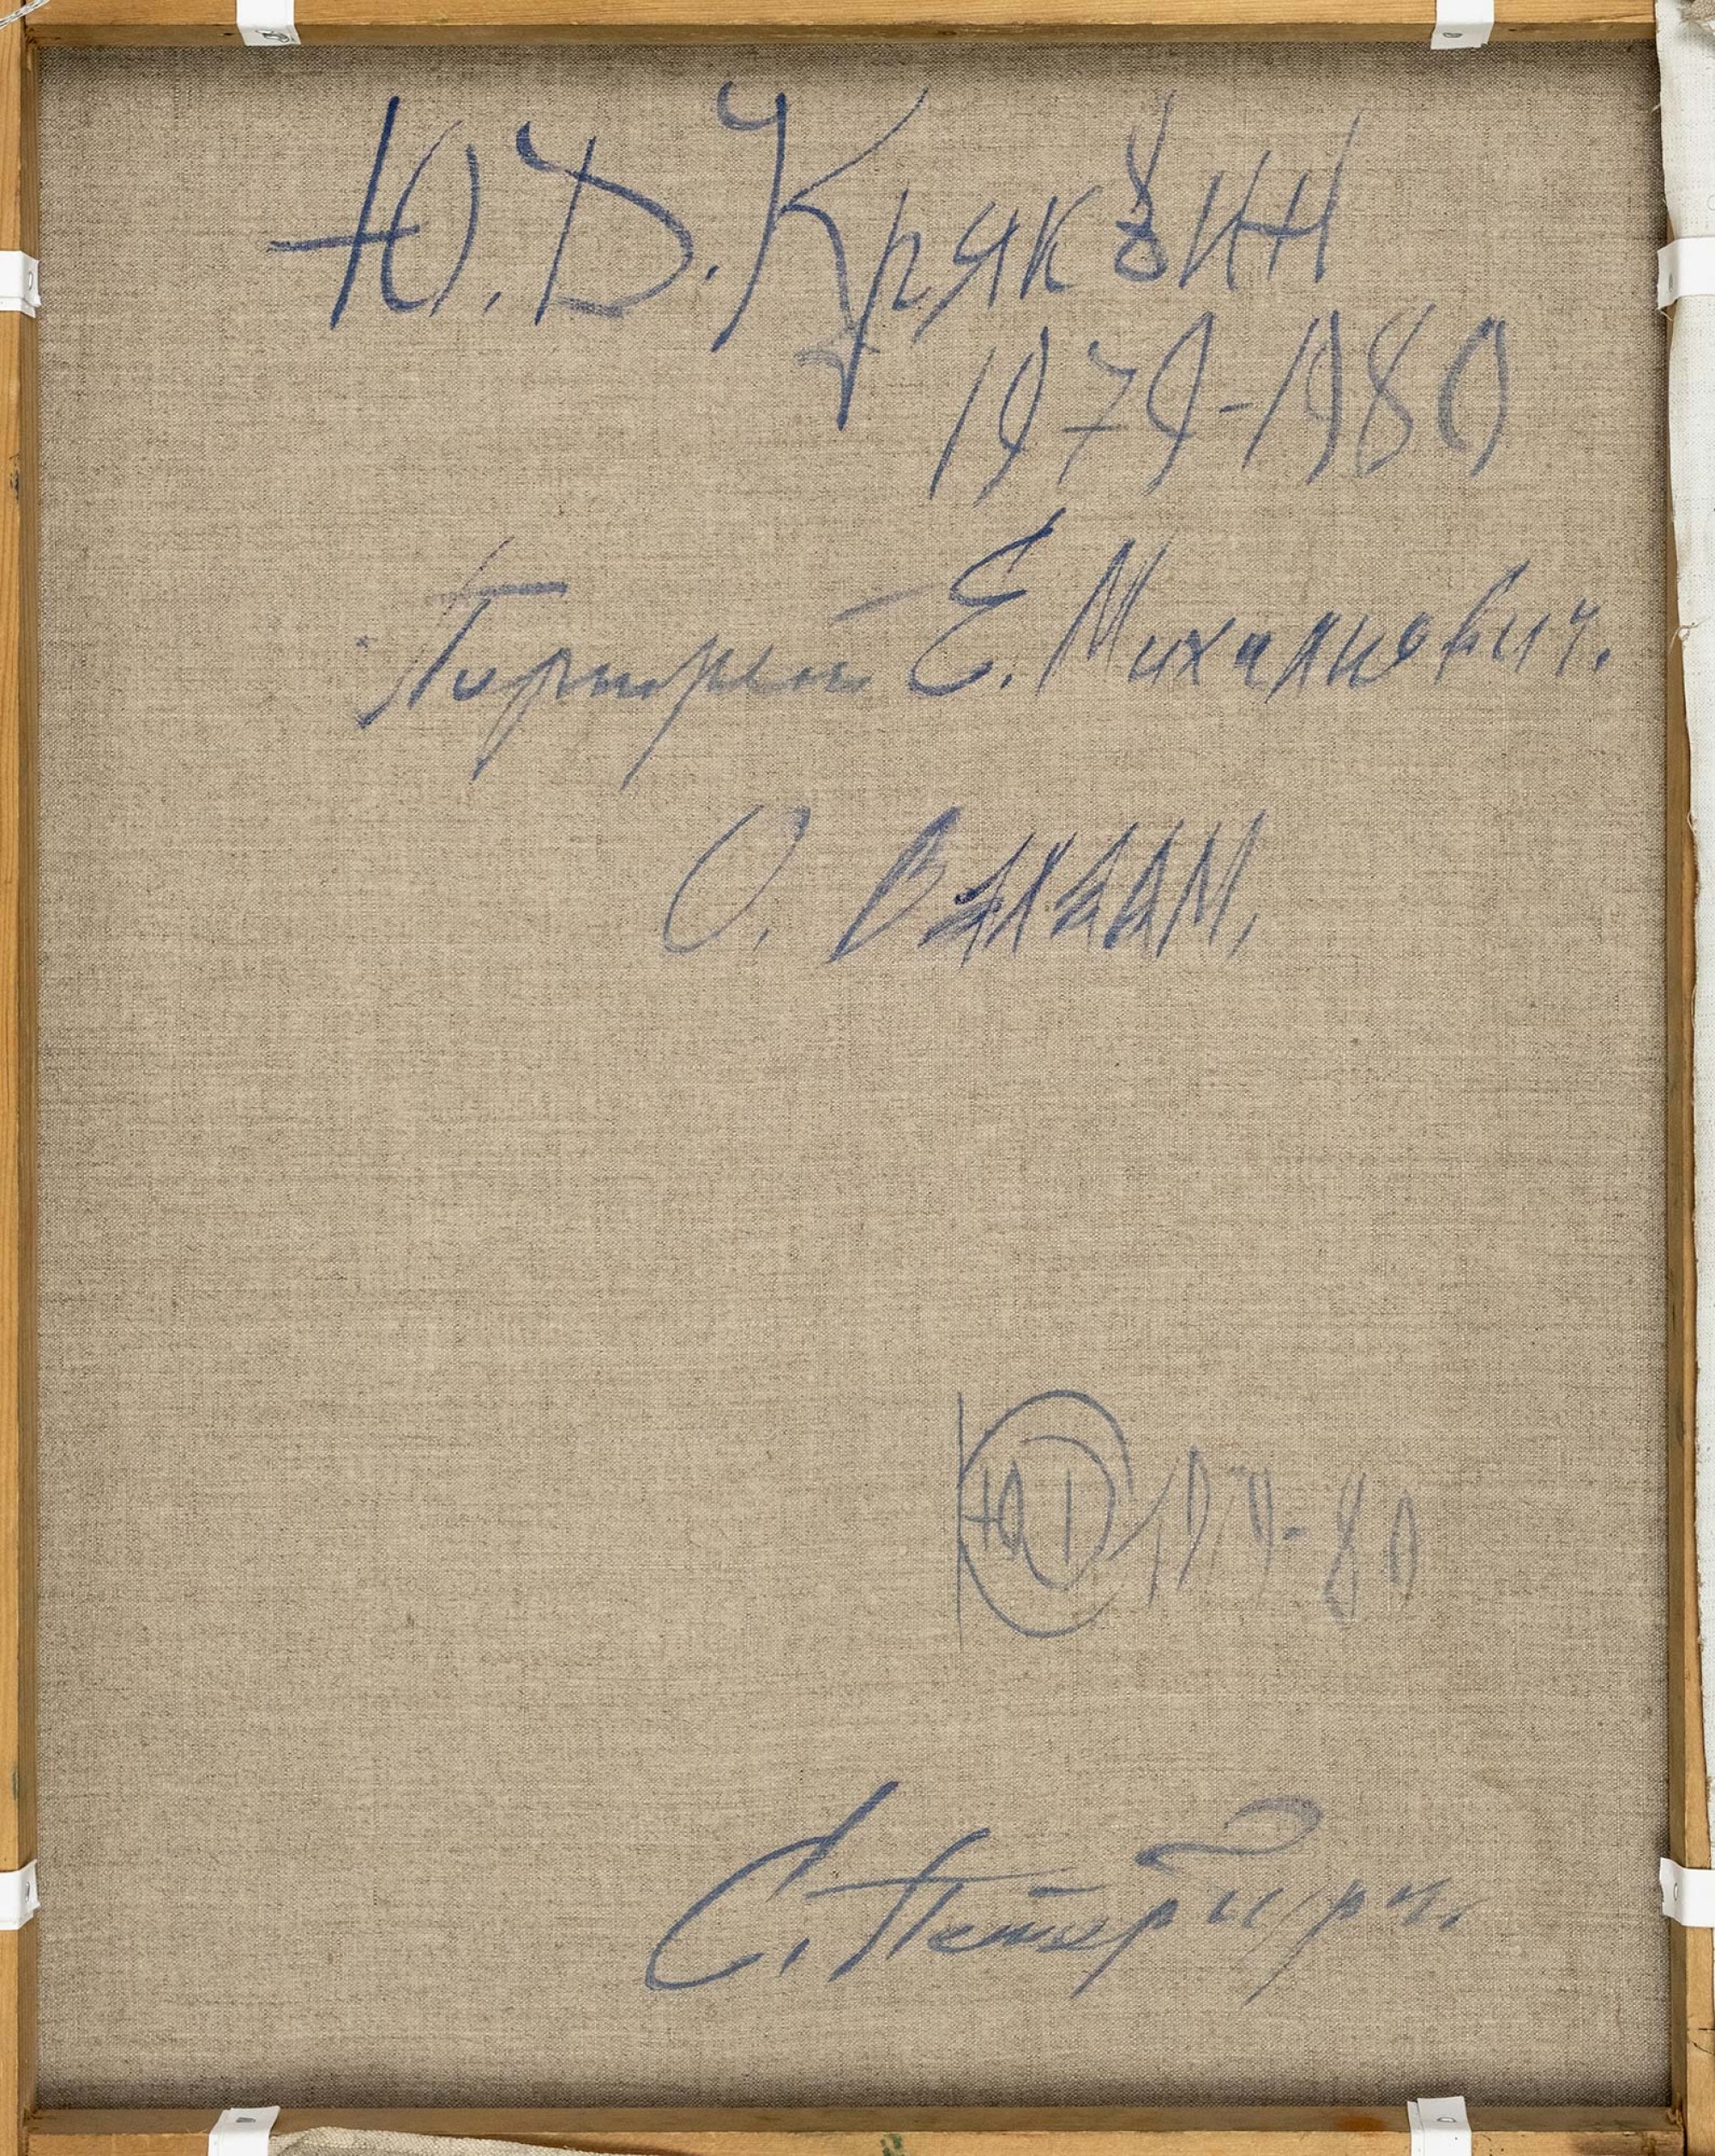 Ю. Д. Круквин
1979-1980
Портрет Е. Михалиович.
О. Валаам.
ЮД 1979-80
С. Петербург.